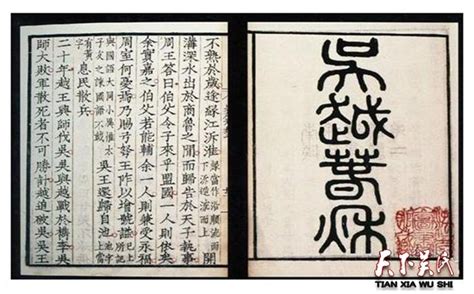 不熟於歲遂緣江泝淮開
溝深水出於商魯之間而歸告於天子執事
周王答曰伯父令子來乎盟國一人則依矣
余實嘉之伯父若能輔余一人則兼受永福
周室何憂焉乃賜弓弩王阼以增號謚
吳王還歸自池
息民散兵
二十年越王興師伐吳吳與越戰於檇李吳
師大敗軍散死者不可勝計越追破吳吳王
吳越春秋
天下吴氏
TIAN XIA WU SHI